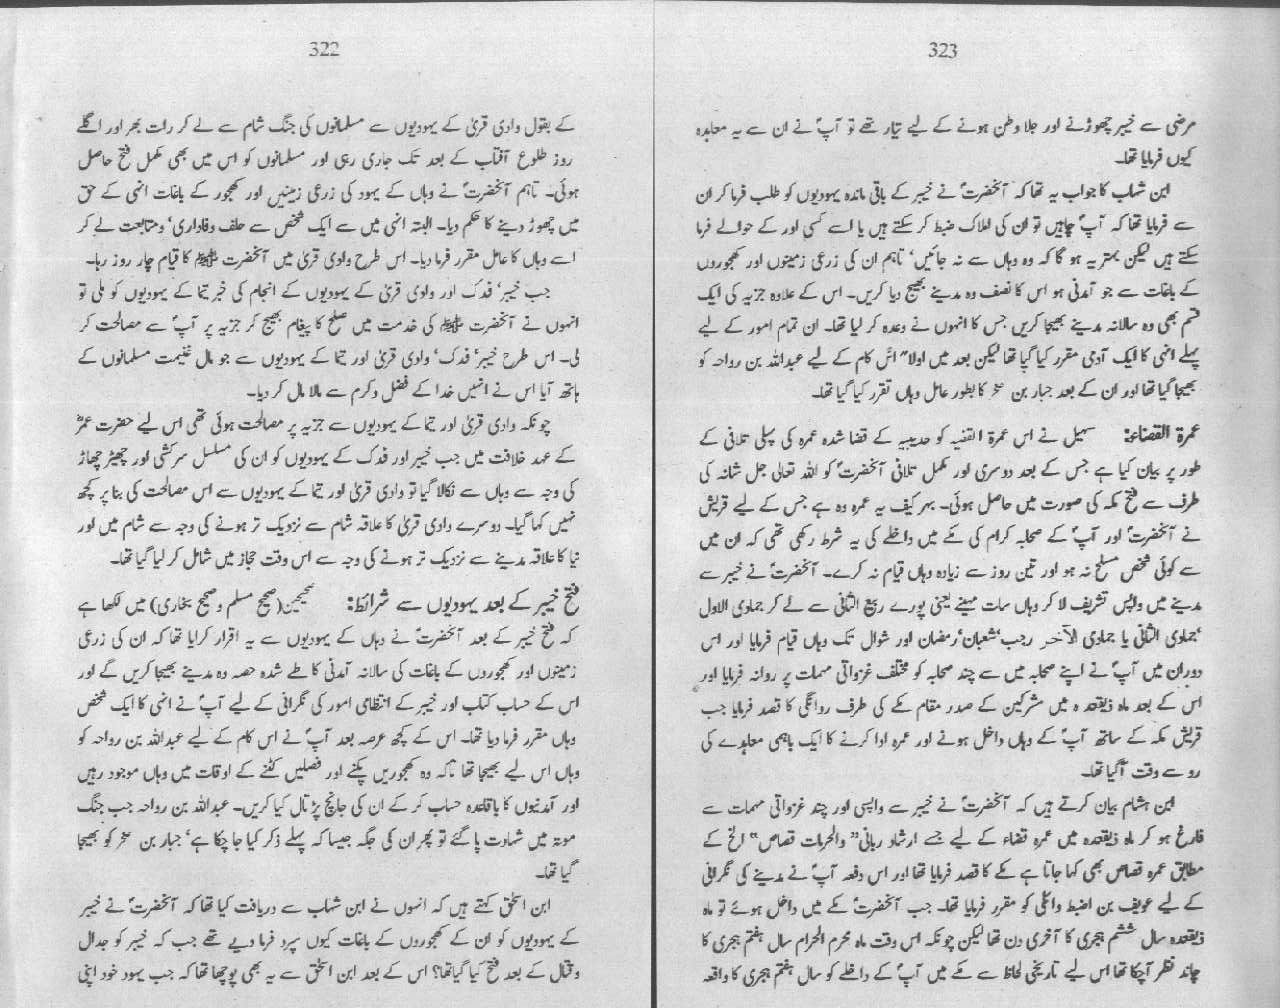 322
کے بقول وادی قریٰ کے یہودیوں سے مسلمانوں کی جنگ شام سے لے کر رات بھر اور اگلے
روز طلوع آفتاب کے بعد تک جاری رہی اور مسلمانوں کو اس میں بھی مکمل فتح حاصل
ہوئی۔ تاہم آنحضرتؐ نے وہاں کے یہود کی زرعی زمینیں اور کھجور کے باغات انہی کے حق
میں چھوڑ دینے کا حکم دیا۔ البتہ انہی میں سے ایک شخص سے حلف وفاداری' ومتابعت لے کر
اسے وہاں کا عامل مقرر فرما دیا۔ اس طرح وادی قریٰ میں آنحضرت ﷺ کا قیام چار روز رہا۔
جب خیبر' فدک اور وادی قریٰ کے یہودیوں کے انجام کی خبر تیما کے یہودیوں کو ملی تو
انہوں نے آنحضرت ﷺ کی خدمت میں صلح کا پیغام بھیج کر جزیہ پر آپؐ سے مصالحت کر
لی۔ اس طرح خیبر' فدک' وادی قریٰ اور تیما کے یہودیوں سے جو مال غنیمت مسلمانوں کے
ہاتھ آیا اس نے انہیں خدا کے فضل وکرم سے مالا مال کر دیا۔
چونکہ وادی قریٰ اور تیما کے یہودیوں سے جزیہ پر مصالحت ہوئی تھی اس لیے حضرت عمرؓ
کے عہد خلافت میں جب خیبر اور فدک کے یہودیوں کو ان کی مسلسل سرکشی اور چھیڑ چھاڑ
کی وجہ سے وہاں سے نکالا گیا تو وادی قریٰ اور تیما کے یہودیوں سے اس مصالحت کی بنا پر کچھ
نہیں کہا گیا۔ دوسرے وادی قریٰ کا علاقہ شام سے نزدیک تر ہونے کی وجہ سے شام میں اور
تیما کا علاقہ مدینے سے نزدیک تر ہونے کی وجہ سے اس وقت حجاز میں شامل کر لیا گیا تھا۔
فتح خیبر کے بعد یہودیوں سے شرائط: صحیحین(صحیح مسلم و صحیح بخاری) میں لکھا ہے
کہ فتح خیبر کے بعد آنحضرتؐ نے وہاں کے یہودیوں سے یہ اقرار کرایا تھا کہ ان کی زرعی
زمینوں اور کھجوروں کے باغات کی سالانہ آمدنی کا طے شدہ حصہ وہ مدینے بھیجا کریں گے اور
اس کے حساب کتاب اور خیبر کے انتظامی امور کی نگرانی کے لیے آپؐ نے انہی کا ایک شخص
وہاں مقرر فرما دیا تھا۔ اس کے کچھ عرصہ بعد آپؐ نے اس کام کے لیے عبداللہ بن رواحہ کو
وہاں اس لیے بھیجا تھا تاکہ وہ کھجوریں پکنے اور فصلیں کٹنے کے اوقات میں وہاں موجود رہیں
اور آمدنیوں کا باقاعدہ حساب کر کے ان کی جانچ پڑتال کیا کریں۔ عبداللہ بن رواحہ جب جنگ
موتہ میں شہادت پا گئے تو پھر ان کی جگہ جیسا کہ پہلے ذکر کیا جا چکا ہے' جبار بن صخر کو بھیجا
گیا تھا۔
ابن اسحٰق کہتے ہیں کہ انہوں نے ابن شہاب سے دریافت کیا تھا کہ آنحضرتؐ نے خیبر
کے یہودیوں کو ان کے کھجوروں کے باغات کیوں سپرد فرما دیے تھے جب کہ خیبر کو جدال
وقتال کے بعد فتح کیا گیا تھا؟ اس کے بعد ابن اسحٰق سے یہ بھی پوچھا تھا کہ جب یہود خود اپنی
323
مرضی سے خیبر چھوڑنے اور جلا وطن ہونے کے لیے تیار تھے تو آپؐ نے ان سے یہ معاہدہ
کیوں فرمایا تھا۔
ابن شہاب کا جواب یہ تھا کہ آنحضرتؐ نے خیبر کے باقی ماندہ یہودیوں کو طلب فرما کر ان
سے فرمایا تھا کہ آپؐ چاہیں تو ان کی املاک ضبط کر سکتے ہیں یا اسے کسی اور کے حوالے فرما
سکتے ہیں لیکن بہتر یہ ہو گا کہ وہ وہاں سے نہ جائیں' تاہم ان کی زرعی زمینوں اور کھجوروں
کے باغات سے جو آمدنی ہو اس کا نصف وہ مدینے بھیج دیا کریں۔ اس کے علاوہ جزیہ کی ایک
قسم بھی وہ سالانہ مدینے بھیجا کریں جس کا انہوں نے وعدہ کر لیا تھا۔ ان تمام امور کے لیے
پہلے انہی کا ایک آدمی مقرر کیا گیا تھا لیکن بعد میں اولا" اس کام کے لیے عبداللہ بن رواحہ کو
بھیجا گیا تھا اور ان کے بعد جبار بن صخر کا بطور عامل وہاں تقرر کیا گیا تھا۔
عمرۃ القضاء: سہیل نے اس عمرۃ القضیہ کو حدیبیہ کے قضا شدہ عمرہ کی پہلی تلافی کے
طور پر بیان کیا ہے جس کے بعد دوسری اور مکمل تلافی آنحضرتؐ کو اللہ تعالی جل شانہ کی
طرف سے فتح مکہ کی صورت میں حاصل ہوئی۔ بہر کیف یہ عمرہ وہ ہے جس کے لیے قریش
نے آنحضرتؐ اور آپؐ کے صحابہ کرام کی مکے میں داخلے کی یہ شرط رکھی تھی کہ ان میں
سے کوئی شخص مسلح نہ ہو اور تین روز سے زیادہ وہاں قیام نہ کرے۔ آنحضرتؐ نے خیبر سے
مدینے میں واپس تشریف لا کر وہاں سات مہینے یعنی پورے ربیع الثانی سے لے کر جمادی الاول
'جمادی الثانی یا جمادی الآخر رجب'شعبان'رمضان اور شوال تک وہاں قیام فرمایا اور اس
دوران میں آپؐ نے اپنے صحابہ میں سے چند صحابہ کو مختلف غزواتی مہمات پر روانہ فرمایا اور
اس کے بعد ماہ ذیقعدہ میں مشرکین کے صدر مقام مکے کی طرف روانگی کا قصد فرمایا جب
قریش مکہ کے ساتھ آپؐ کے وہاں داخل ہونے اور عمرہ ادا کرنے کا ایک باہمی معاہدے کی
رو سے وقت آگیا تھا۔
ابن ہشام بیان کرتے ہیں کہ آنحضرتؐ نے خیبر سے واپسی اور چند غزواتی مہمات سے
فارغ ہو کر ماہ ذیقعدہ میں عمرہ قضاء کے لیے جسے ارشاد ربانی" والحرمات قصاص " الخ کے
مطابق عمرہ قصاص بھی کہا جاتا ہے مکے کا قصد فرمایا تھا اور اس دفعہ آپؐ نے مدینے کی نگرانی
کے لیے عویف بن اضبط وائلی کو مقرر فرمایا تھا۔ جب آنحضرتؐ مکے میں داخل ہوئے تو ماہ
ذیقعدہ سال ششم ہجری کا آخری دن تھا لیکن چونکہ اس وقت ماہ محرم الحرام سال ہفتم ہجری کا
چاند نظر آچکا تھا اس لیے تاریخی لحاظ سے مکے میں آپؐ کے داخلے کو سال ہفتم ہجری کا واقعہ